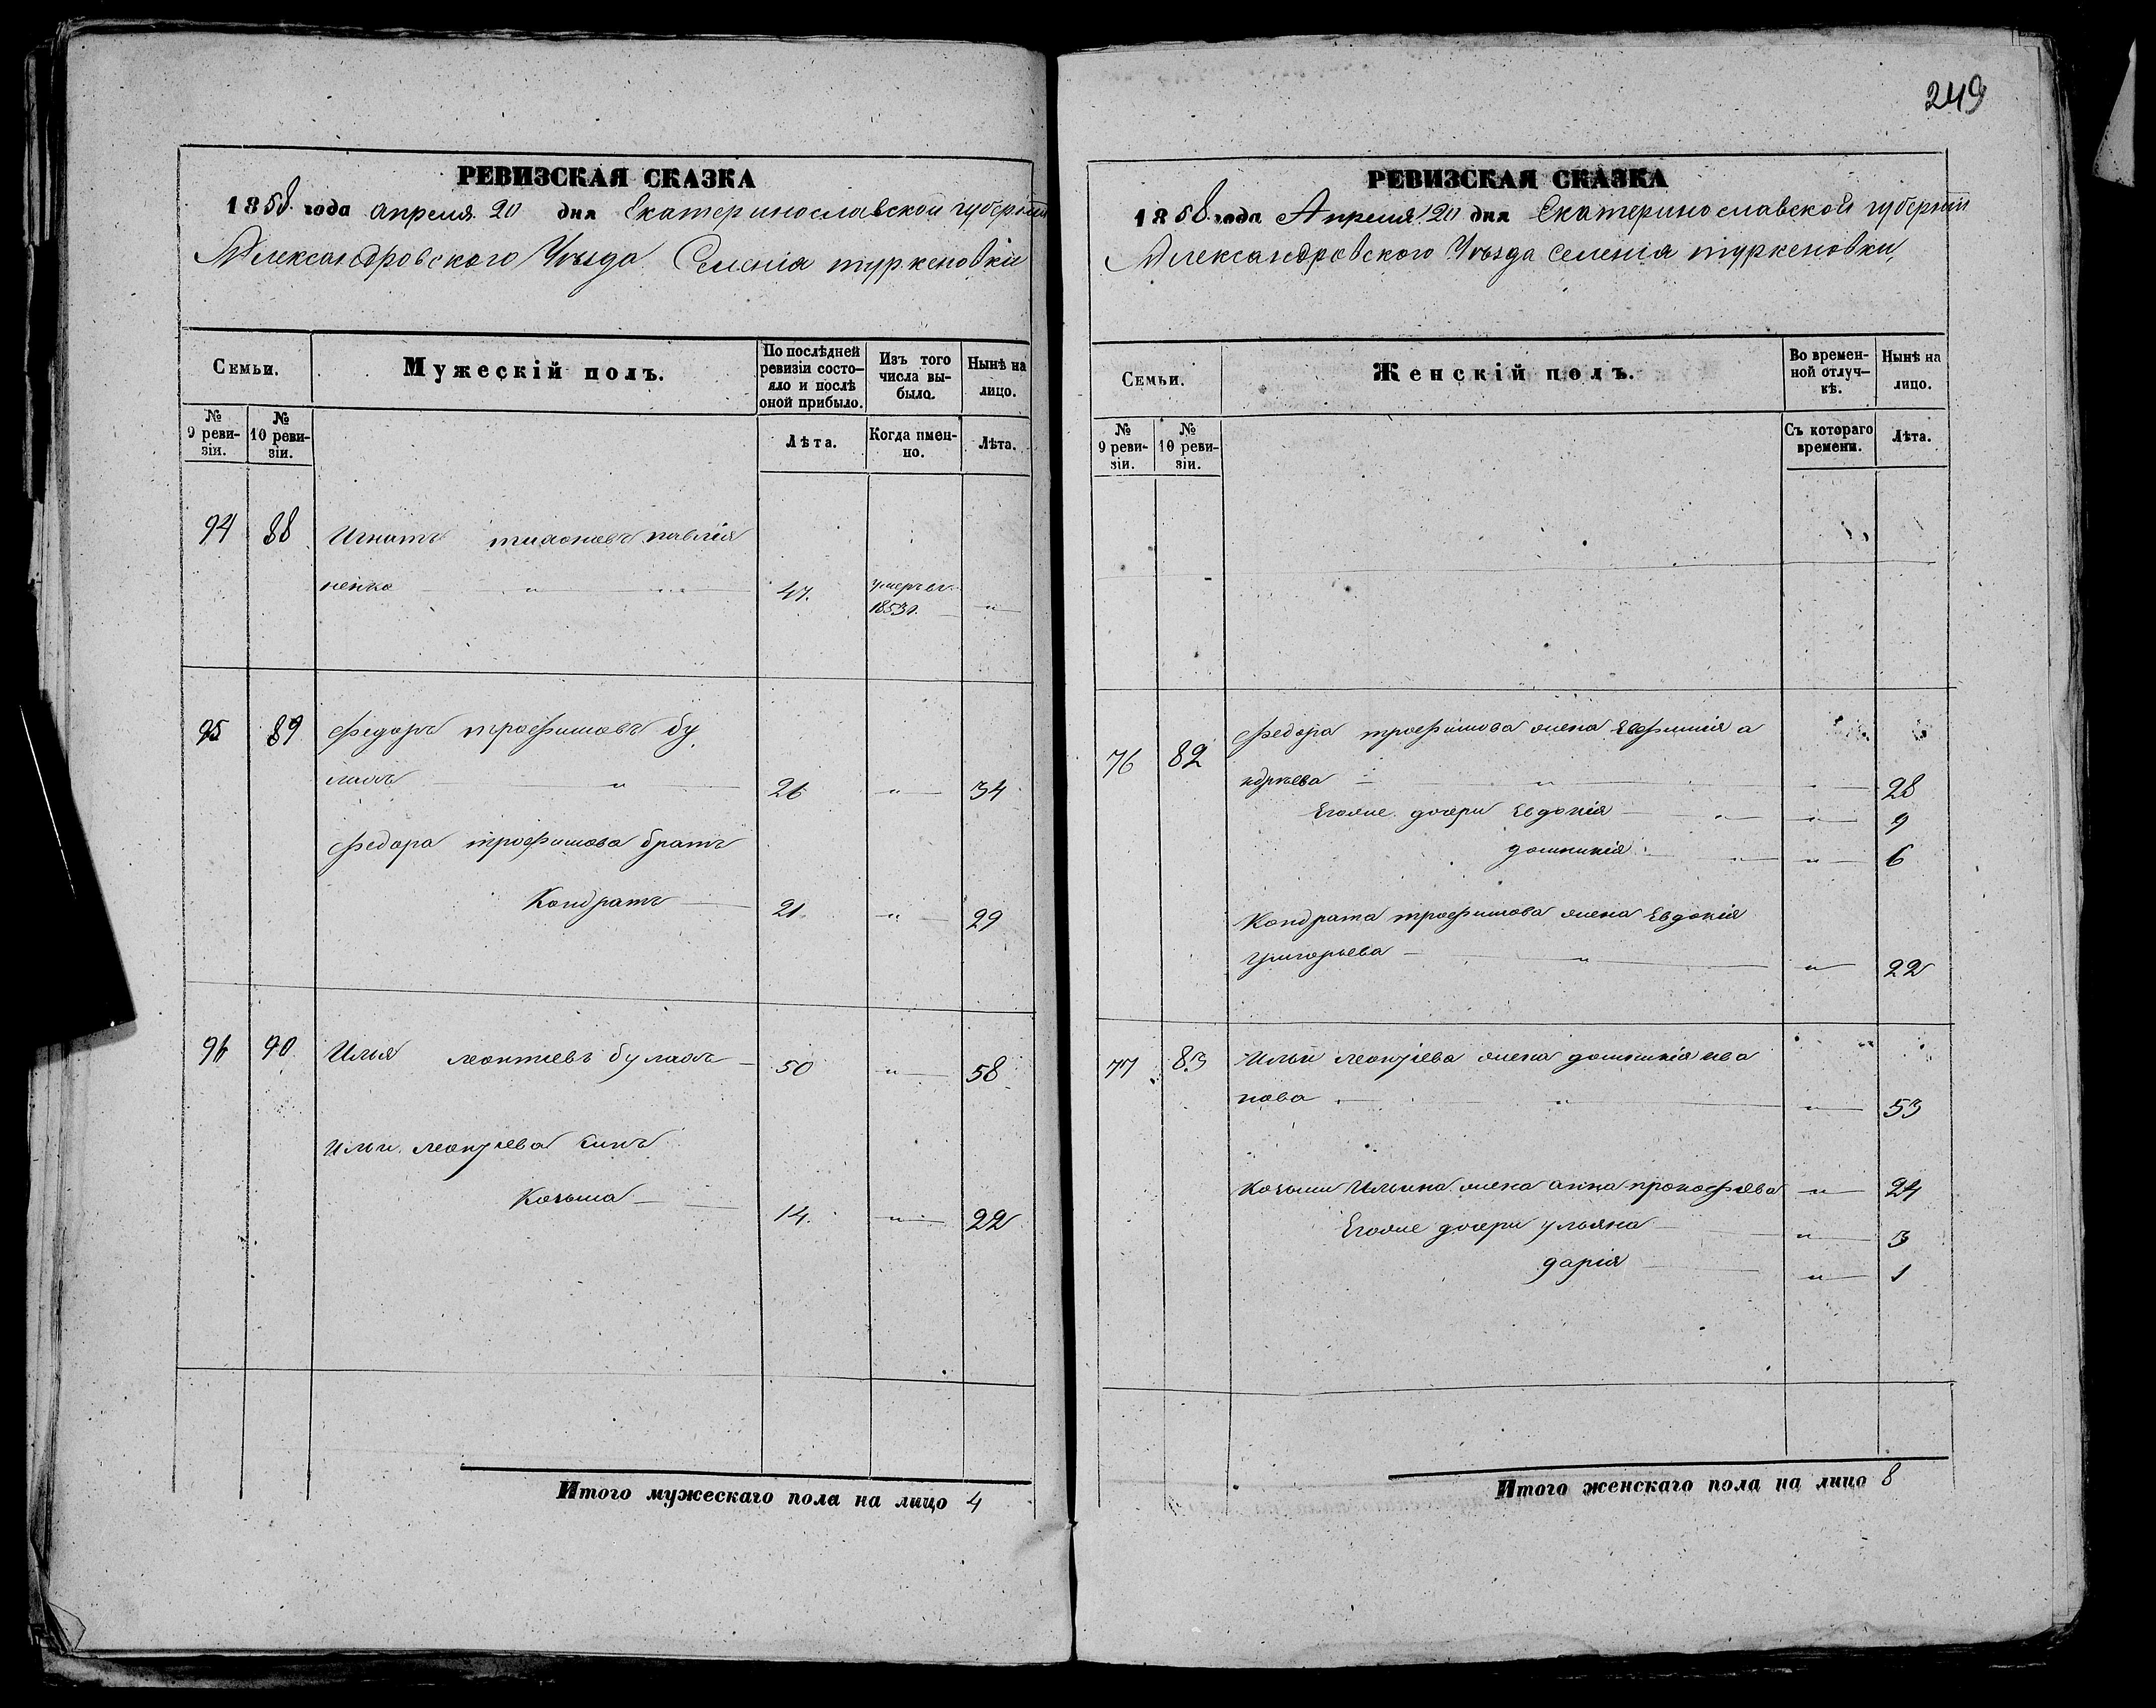 РЕВИЗСКАЯ СКАЗКА
1858 года апреля 20 дня Екатеринославской губернии
Александровского Уѣзда Селенія туркеновки
Семьи.
Мужескій полъ.
По послѣдней ревизіи состо-яло и послѣ оной прибыло.
Изъ того числа вы-было.
Нынѣ на лицо.
№ 9 реви-зіи.
№ 10 реви-зіи.
Лѣта.
Когда имен-но.
Лѣта.
94 88 Игнатъ тихоновъ павлія
ненко " 47. умеръ въ 1853г. "
95 89 федоръ трофимовъ бу
лахъ " 26 " 34
федора трофимова братъ
Кондратъ 21 " 29
96 90 Илья леонтиевъ булахъ 50 " 58
Ильи леонтіева сынъ
Козьма 14. " 22
Итого мужескаго пола на лицо 4
249
РЕВИЗСКАЯ СКАЗКА
1858 года Апреля 20 дня Екатеринославской губернии
Александровского Уѣзда селенія туркеновки
Семьи.
Женскій полъ.
Во времен-ной отлуч-кѣ.
Нынѣ на лицо.
№ 9 реви-зіи.
№ 10 реви-зіи.
Съ котораго времени.
Лѣта.
76 82 федора трофимова жена Евфимія а
ндрѣева " 28
Егоже дочери Евдокія " " 9
домникія " " 6
Кондрата трофимова жена Евдокія
григорьева " " 22
77 83 Ильи леонтіева жена домникія ива
нова " " 53
Козьми Ильина жена анна прокофіева " 24
Егоже дочери ульяна " 3
дарія " 1
Итого женскаго пола на лицо 8